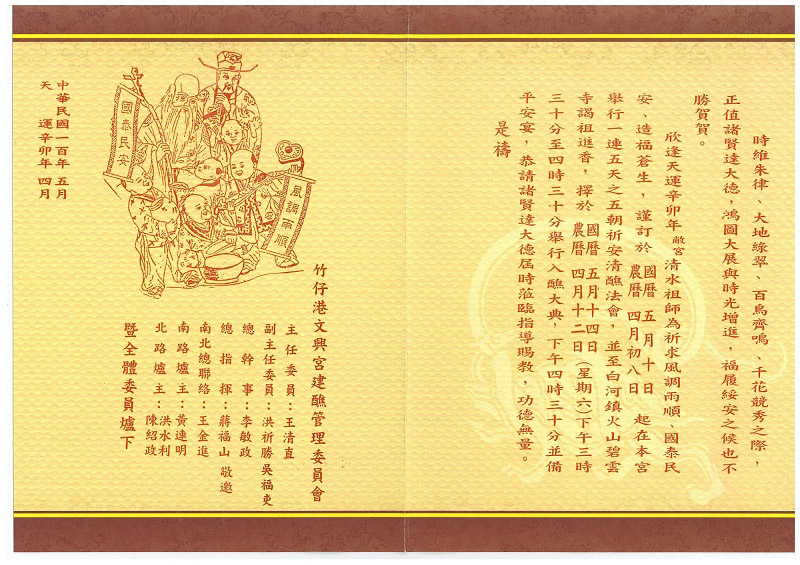 時維朱律、大地綠翠、百鳥齊鳴、千花競秀之際，
正值諸賢達大德，鴻圖大展與時光增進，福履綏安之候也不
勝賀賀。
欣逢天運辛卯年 敝宮 清水祖師為祈求風調雨順、國泰民
安、造福蒼生，謹訂於 國曆 五月十日 農曆 四月初八日 起在本宮
舉行一連五天之五朝祈安清醮法會，並至白河鎮火山碧雲
寺謁祖進香，擇於 國曆 五月十四日 農曆 四月十二日（星期六）下午三時
三十分至四時三十分舉行入醮大典，下午四時三十分並備
平安宴，恭請諸賢達大德屆時蒞臨指導賜教，功德無量。
是禱
竹仔港文興宮建醮管理委員會
主任委員：王清直
副主任委員：洪祈勝 吳福吏
總幹事：李敏政
總指揮：蔣福山 敬邀
南北總聯絡：王金進
南路爐主：黃連明
北路爐主：洪水利
陳紹政
暨全體委員爐下
風調雨順
國泰民安
中華民國一百年 五月
天運辛卯年 四月